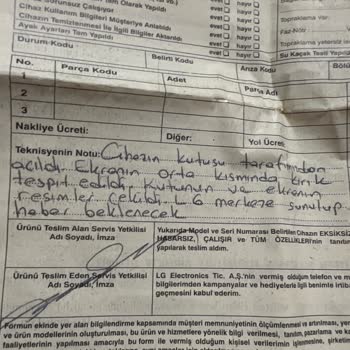 Sorunsuz Çalışıyor
Cihaz Kullanım Bilgileri Müşteriye Anlatıldı
Cihazın Temizlenmesi İle İlgili Bilgiler Aktarıldı
Ayak Ayarları Tam Yapıldı
evet hayır
evet hayır
evet hayır
evet hayır
Topraklama var:
Faz-Nötr
Topraklama yetersiz
Su Kaçak Testi Yapıldı
Durum Kodu
Belirti Kodu
Arıza Kodu
No. Parça Kodu Adet Parça Adı
1
2
3
Nakliye Ücreti: Diğer: Yol Ücreti
Teknisyenin Notu: Cihazın kutusu tarafımdan
açıldı. Ekranın orta kısmında kırık
tespit edildi. Kutunun ve ekranın
resimler çekildi. LG merkeze sunulup
haber beklenecek
Ürünü Teslim Alan Servis Yetkilisi
Adı Soyadı, İmza
Yukarıda Model ve Seri Numarası Belirtilen Cihazın EKSİKSİZ
HASARSIZ, ÇALIŞIR ve TÜM ÖZELLİKLERİ'nin
yapılarak teslim aldım.
Ürünü Teslim Eden Servis Yetkilisi
Adı Soyadı, İmza
LG Electronics Tic. A.Ş.'nin vermiş olduğum telefon ve
bilgilerimden kampanyalar ve hediyelerle ilgili benimle
geçmesini kabul ederim.
Formun ekinde yer alan bilgilendirme kapsamında müşteri memnuniyetinin ölçümlenmesi ve artırılması, yeni
ve ürün modellerinin oluşturulması, bu ürün ve hizmetlere yönelik bilgi verilmesi, tanıtım, pazarlama ve
faaliyetlerinin yapılması amacıyla bu form ile vermiş olduğum kişisel verilerimin işlenmesine,